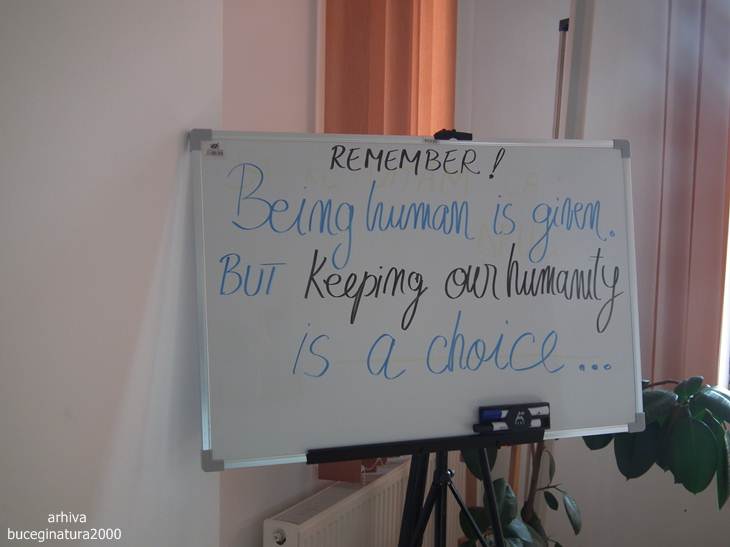 REMEMBER!
Being human is given.
BUT keeping our humanity
is a choice...
arhiva
buceginatura2000